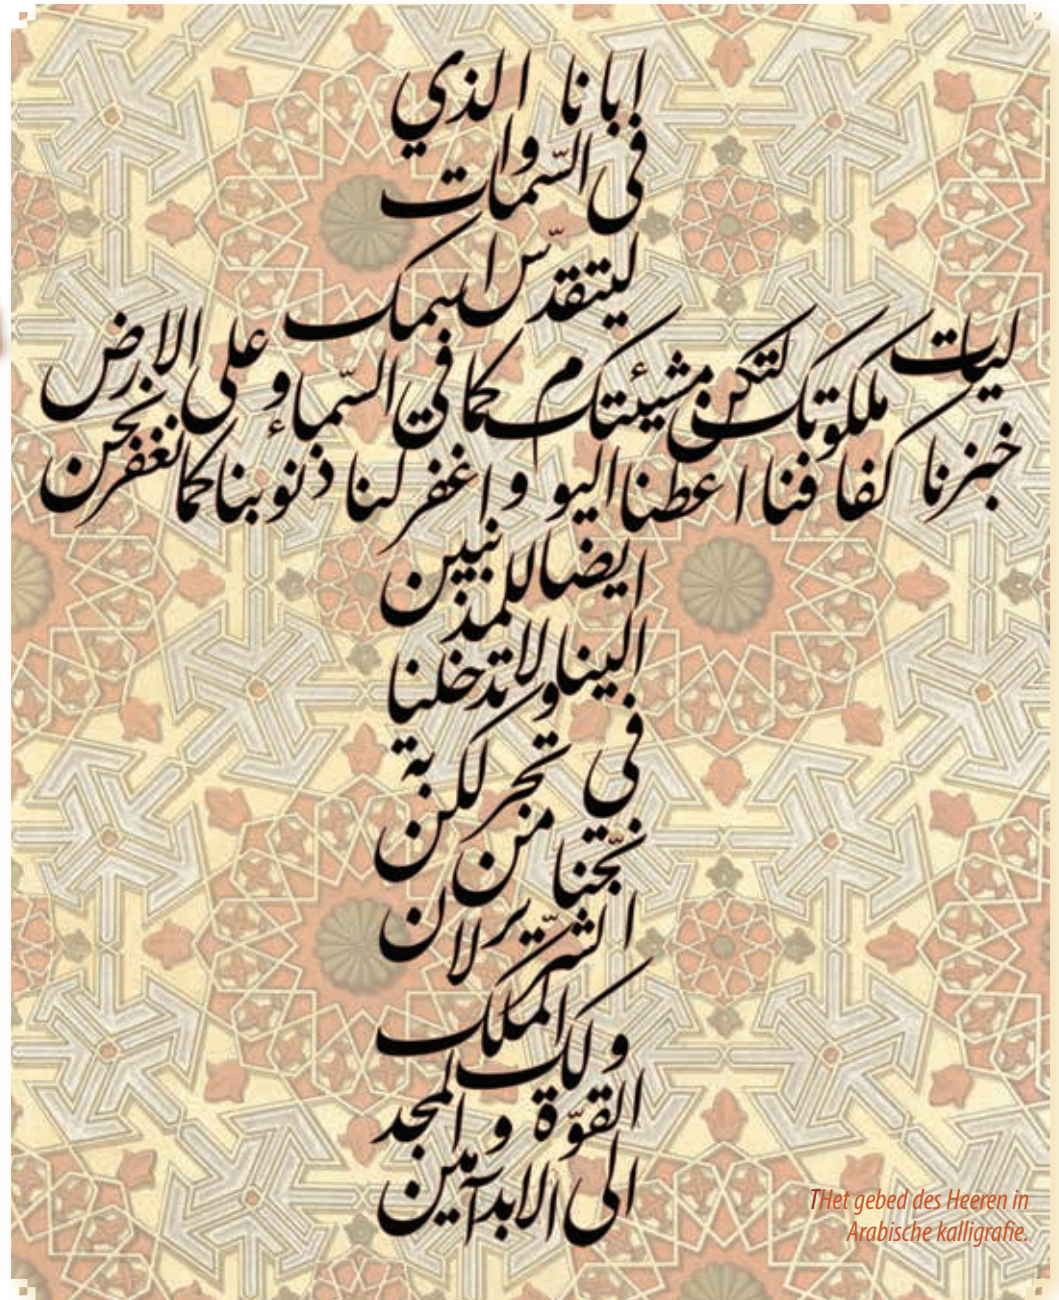 ابانا الذي
فى السّموات
ليتقدّس اسمك
ليات ملكوتك لتكن مشيئتك كما في السّماء و على الارض
خبزنا كفافنا اعطنا اليوم و اغفر لنا ذنوبنا كما نغفر نحن
ايضا للمذنبين
الينا ولا تدخلنا
فى تجربة لكن
نجّنا من
الشّرّير لان
لك الملك و
القوّة و المجد
الى الابد آمين
THet gebed des Heeren in
Arabische kalligrafie.